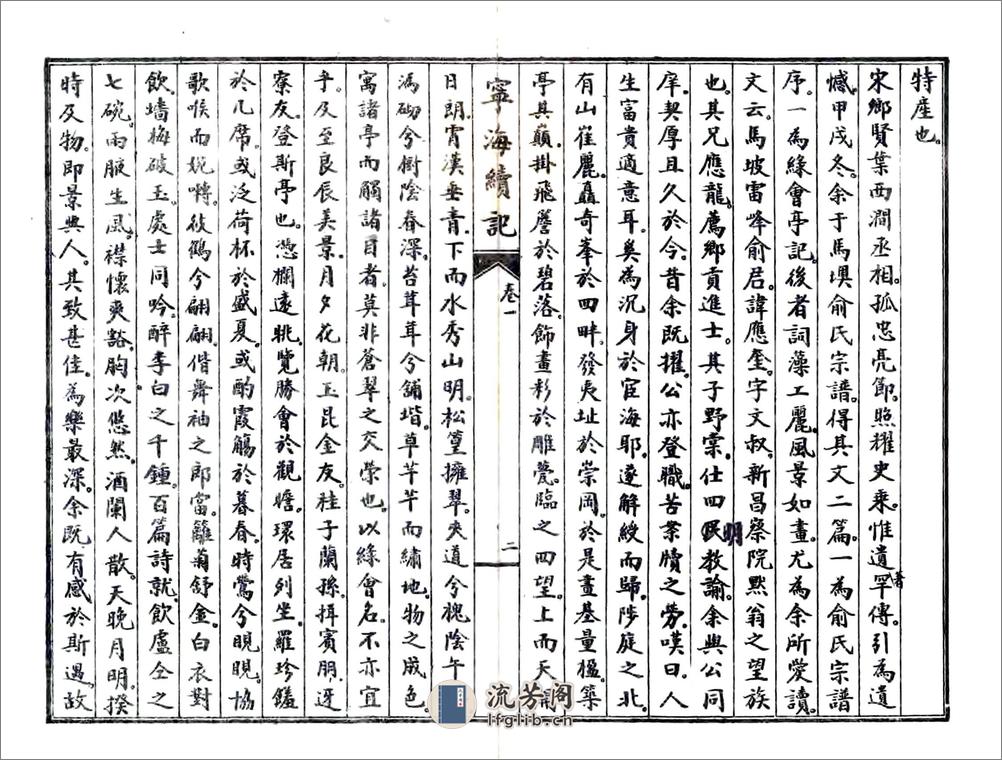 特產也。
宋鄉賢葉西澗丞相。孤忠亮節。照耀史乘。惟遺著罕傳。引為遺
憾。甲戌冬。余于馬墺俞氏宗譜。得其文二篇。一為俞氏宗譜
序。一為綠會亭記。後者詞藻工麗。風景如畫。尤為余所愛讀。
文云。馬坡雷峰俞君。諱應奎。字文叔。新昌察院默翁之望族
也。其兄應龍。薦鄉貢進士。其子野棠。仕四明教諭。余與公同
庠。契厚且久於今。昔余既擢。公亦登職。苦案牘之勞。嘆曰。人
生富貴適意耳。奚為沉身於宦海耶。遂解綬而歸。陟庭之北。
有山崔麗。矗奇峯於四畔。發夷址於崇岡。於是畫基量楹。築
亭其巔。掛飛甍於碧落。飾畫彩於雕甍。臨之四望。上而天開
日朗。霄漢垂青。下而水秀山明。松篁擁翠。夾道兮槐陰午
為砌兮樹陰春深。苔茸茸兮鋪堦。草芊芊而繡地。物之成色。
寓諸亭而觸諸目者。莫非蒼翠之交榮也。以綠會名。不亦宜
乎。及至良辰美景。月夕花朝。玉昆金友。桂子蘭孫。揖賓朋。迓
寮友。登斯亭也。憑欄遠眺。覽勝會於觀瞻。環居列坐。羅珍饈
於几席。或泛荷杯於盛夏。或酌霞觴於暮春。時鶯兮睍睍。協
歌喉而婉囀。彼鶴兮翩翩。偕舞袖之郎當。籬菊舒金。白衣對
飲。墻梅破玉。處士同吟。醉李白之千鍾。百篇詩就。飲盧仝之
七碗。兩腋生風。襟懷爽豁。胸次悠然。酒闌人散。天晚月明。揆
時及物。即景興人。其致甚佳。為樂最深。余既有感於斯遇。故
寧海續記
卷一
二
流芳阁
lfglib.cn